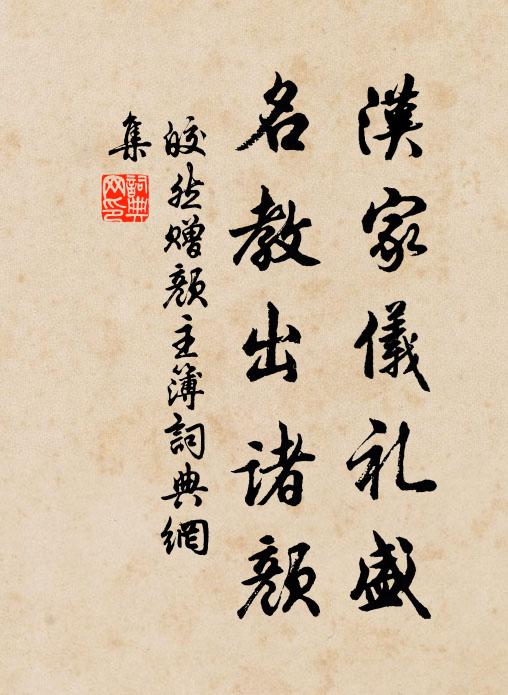 漢家儀礼盛
名教出诸颜
皎然赠颜主簿詞典網
集
詞典
网印